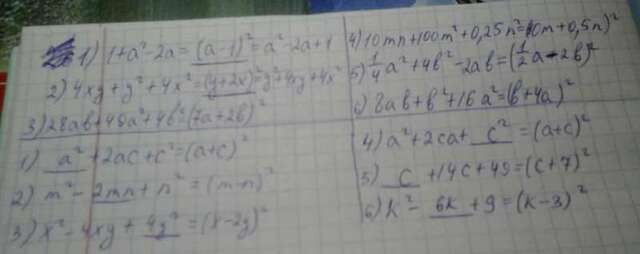 1) 1+a²-2a=(a-1)²=a²-2a+1
2) 4xy+y²+4x²=(y+2x)²=y²+4xy+4x²
3) 28ab+49a²+4b²=(7a+2b)²
1) a²+2ac+c²=(a+c)²
2) m²-2mn+n²=(m-n)²
3) x²-4xy+4y²=(x-2y)²
4) 10mn+100m²+0,25n²=(10m+0,5n)²
5) 1/4a²+4b²-2ab=(1/2a-2b)²
6) 8ab+b²+16a²=(b+4a)²
4) a²+2ca+c²=(a+c)²
5) c+14c+49=(c+7)²
6) k²-6k+9=(k-3)²